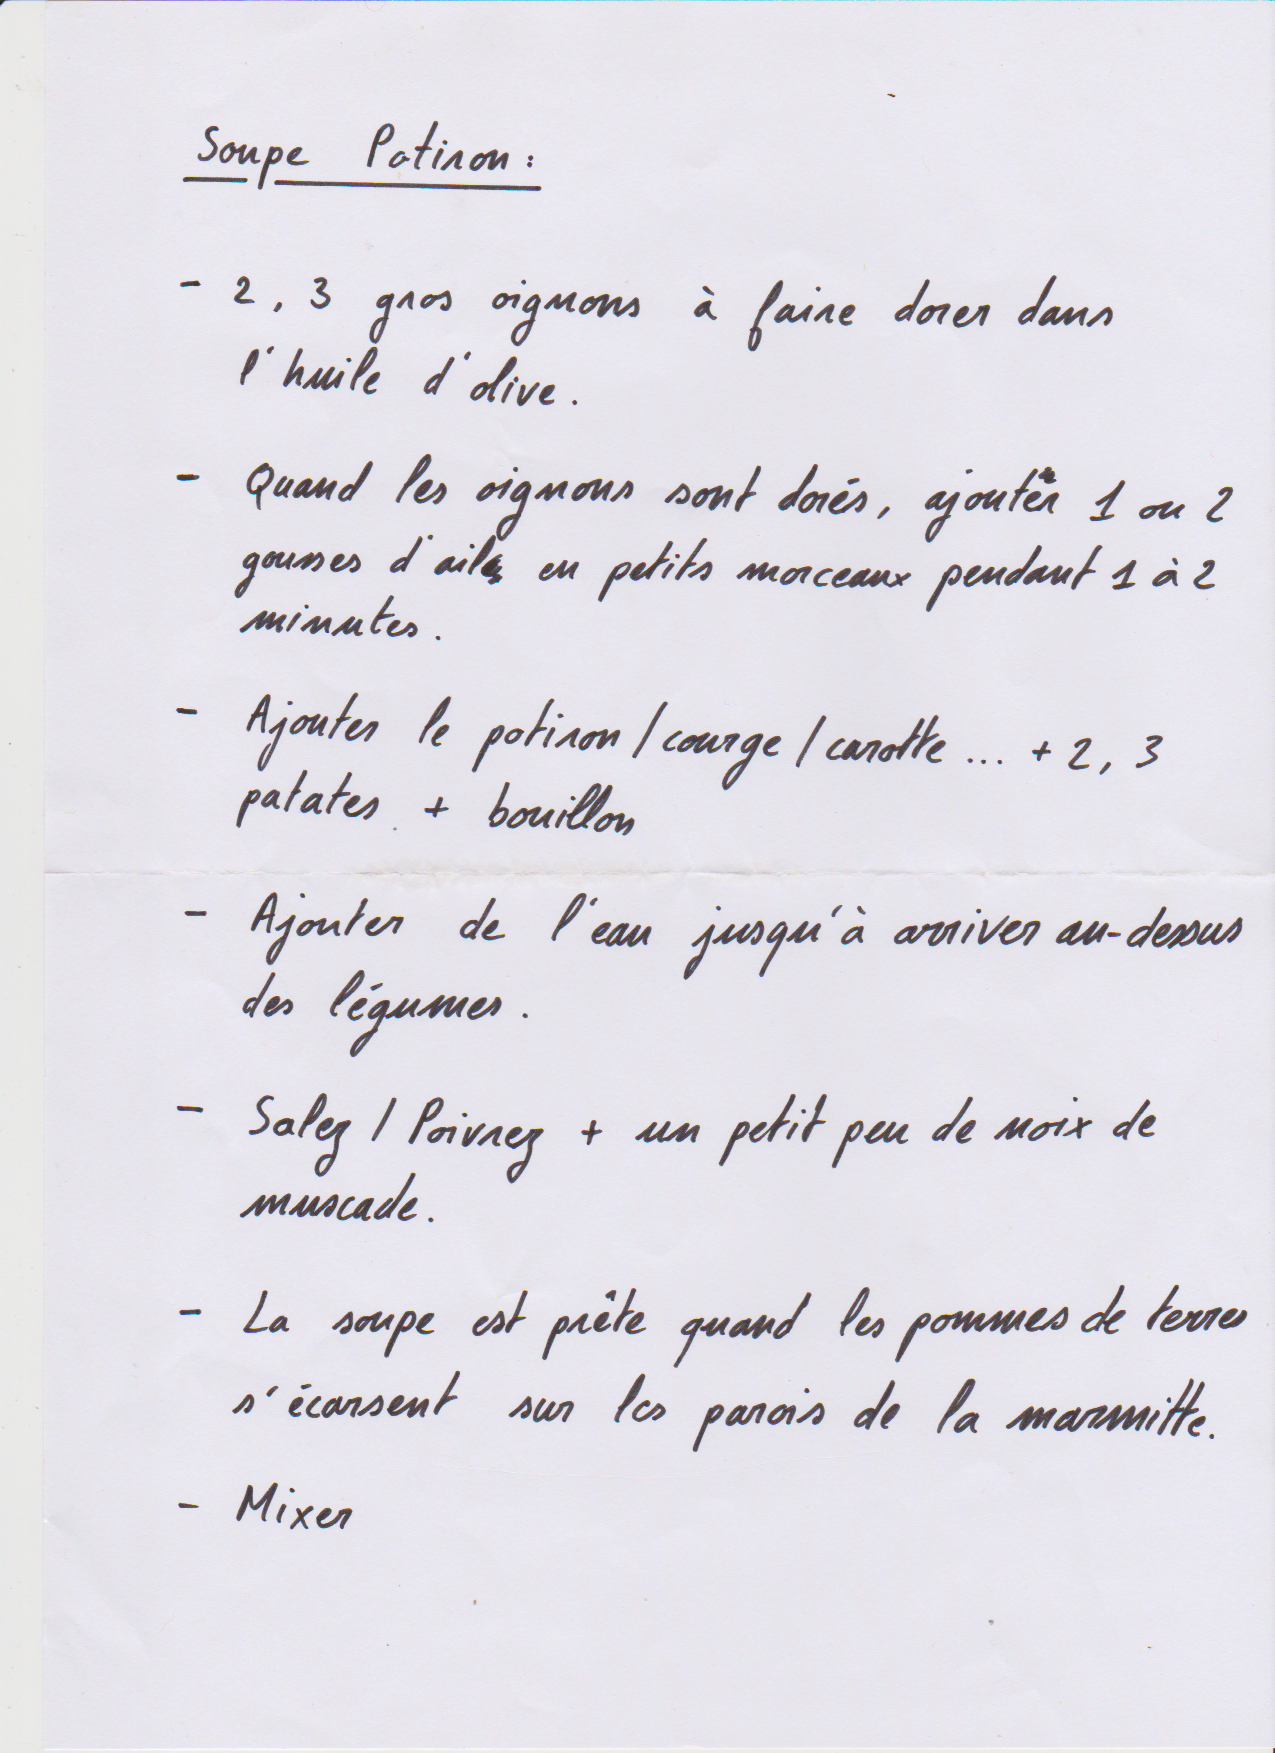 Soupe Potiron :
- 2, 3 gros oignons à faire dorer dans
l'huile d'olive.
- Quand les oignons sont dorés, ajouter 1 ou 2
gousses d'ail en petits morceaux pendant 1 à 2
minutes.
- Ajouter le potiron / courge / carotte ... + 2, 3
patates + bouillon
- Ajouter de l'eau jusqu'à arriver au-dessus
des légumes.
- Salez / Poivrez + un petit peu de noix de
muscade.
- La soupe est prête quand les pommes de terres
s'écarsent sur les parois de la marmitte.
- Mixer